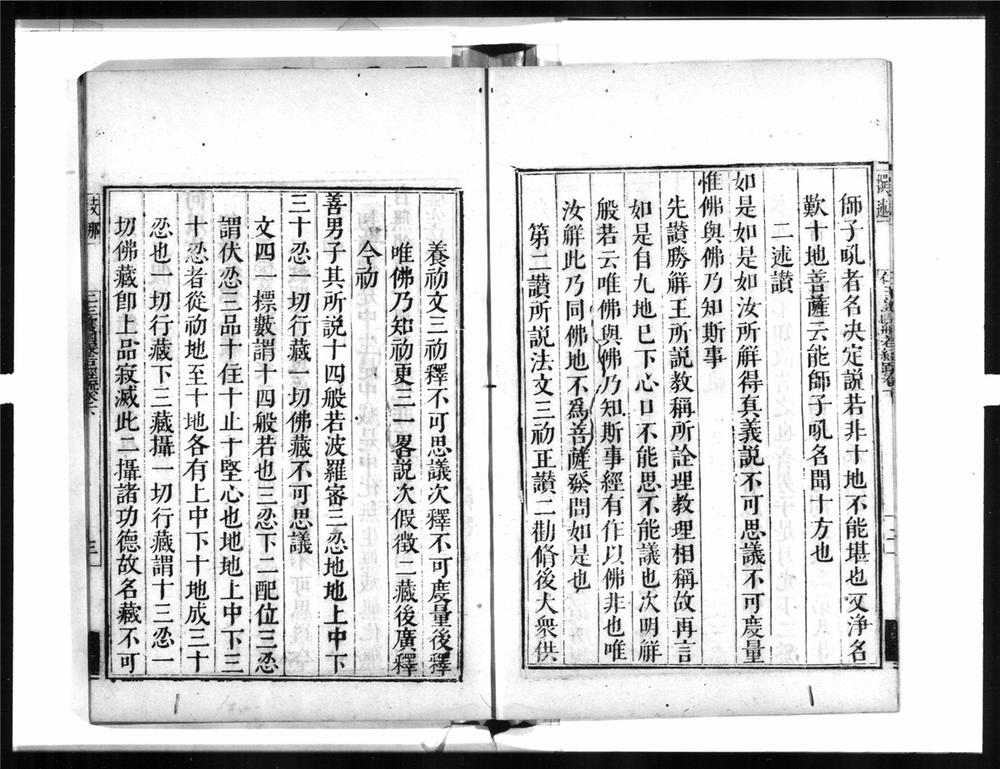 師子吼者名决定説若非十地不能堪也又淨名
歎十地菩薩云能師子吼名聞十方也
二述讃
如是如是如汝所解得真義説不可思議不可度量
惟佛與佛乃知斯事
先讃勝解王所説教稱所詮理教理相稱故再言
如是自九地巳下心口不能思不能議也次明解
般若云唯佛與佛乃知斯事經有作以佛非也唯
汝解此乃同佛地不爲菩薩發問如是也
第二讃所説法文三初正讃二勸脩後大衆供
養初文三初釋不可思議次釋不可度量後釋
唯佛乃知初更三一畧説次假徵二藏後廣釋
今初
善男子其所説十四般若波羅宻三忍地地上中下
三十忍一切行藏一切佛藏不可思議
文四一標數謂十四般若也三忍下二配位三忍
謂伏忍三品十住十止十堅心也地地上中下三
十忍者從初地至十地各有上中下十地成三十
忍也一切行藏下三藏攝一切行藏謂十三忍一
切佛藏卽上品寂滅此二攝諸功德故名藏不可
三